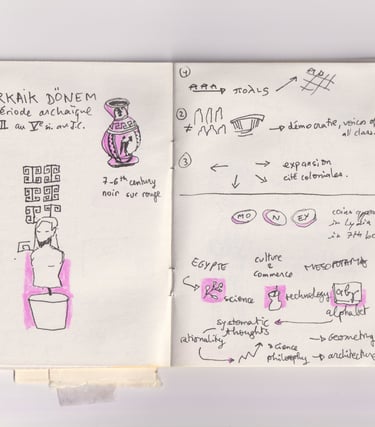 RKAIK DÖNEM
ériode archaïque
II au Ve si. av J.C.
7-6th century
noir sur rouge
1
πολις
2
≠
démocratie, voices of
all clas
3
expansion
cité coloniales.
MO N EY
coins appear
in Lydia
in 7th bc
EGYPTE
culture
&
commerce
MESOPOTAMIA
science
technology
alphabet
systematic
thoughts
rationality
science
philosophy
geometry
architecture